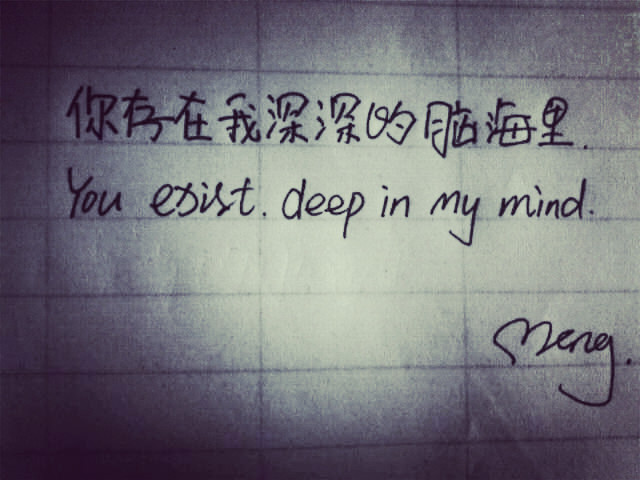 你存在我深深的脑海里.
You exist. deep in my mind.
Meng.